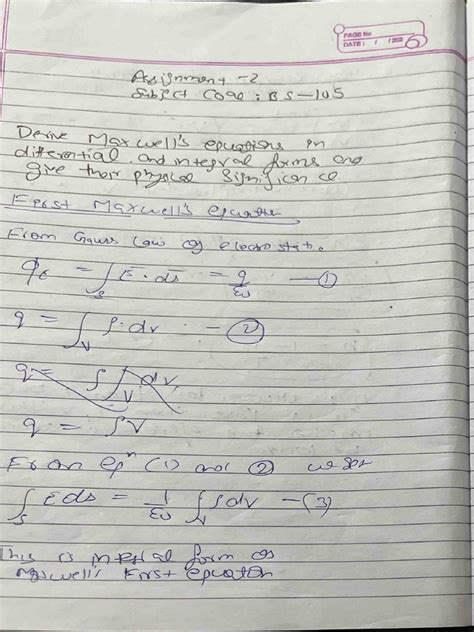 PAGE No.
DATE: / /202
6
Assignment -2
Subject Code : BS-105
Derive Maxwell's equations in
differential and integral forms and
give their physical Significance
First Maxwell's equation
From Gauss Law of electrostatic
ϕE = ∫S E · ds = q/ε0 — (1)
q = ∫V ρ·dv — (2)
q = ρ∫V dv
q = ρV
From eqn (1) and (2) we get
∫S E ds = 1/ε0 ∫V ρdv — (3)
This is integral form of
Maxwell's First equation